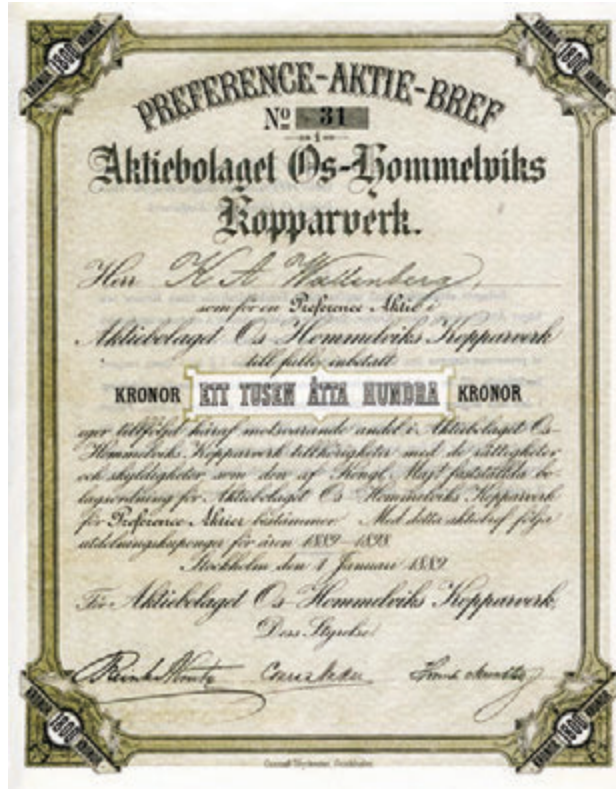 PREFERENCE-AKTIE-BREF
Nº 31
i
Aktiebolaget Os-Hommelviks
Kopparverk.
Herr K A Wallenberg,
som för en Preference Aktie i
Aktiebolaget Os-Hommelviks Kopparverk
till fullo inbetalt
KRONOR ETT TUSEN ÅTTA HUNDRA KRONOR
eger tillföljd häraf motsvarande andel i Aktiebolaget Os-
Hommelviks Kopparverk tillhörigheter med de rättigheter
och skyldigheter, som den af Kongl. Maj:t fastställda bo-
lagsordning för Aktiebolaget Os-Hommelviks Kopparverk
för Preference Aktier bestämmer. Med detta aktiebref följa
utdelningskuponger för åren 1889-1898.
Stockholm den 1 Januari 1889.
För Aktiebolaget Os-Hommelviks Kopparverk,
Dess Styrelse:
KRONOR 1800 KRONOR
KRONOR 1800 KRONOR
KRONOR 1800 KRONOR
KRONOR 1800 KRONOR